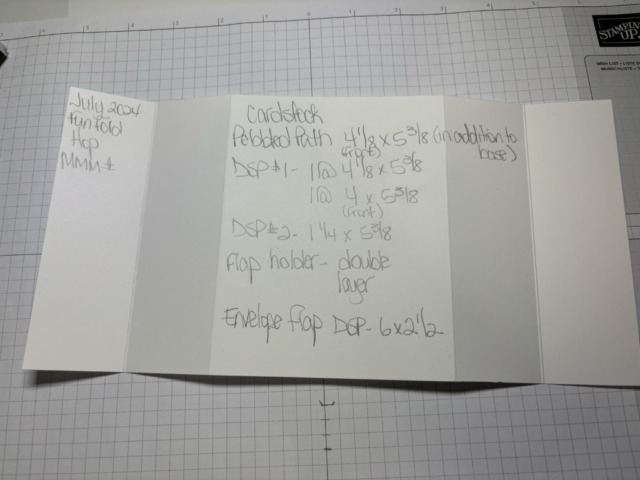 July 2024
Fun Fold
Hop
Cardstock
Pebbled Path 4 1/8 x 5 3/8 (in addition to base)
(front)
DSP #1- 1@ 4 1/8 x 5 3/8
1@ 4 x 5 3/8
(front)
DSP #2- 1 1/4 x 5 3/8
Flap holder- double
layer
Envelope Flap DSP- 6 x 2 1/2
STAMPIN'
UP!